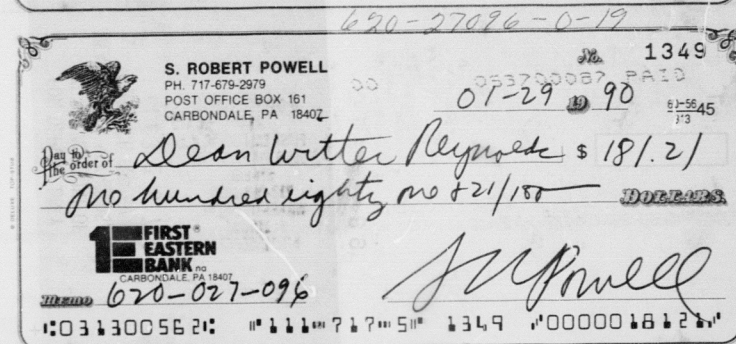 620-27096-0-19
No. 1349
S. ROBERT POWELL
PH. 717-679-2979
POST OFFICE BOX 161
CARBONDALE, PA 18407
053700087 PAID
01-29 19 90
60-56 45
313
Pay to the order of Dean Witter Reynolds $ 181.21
One hundred eighty one & 21/100 DOLLARS
1E FIRST EASTERN BANK na
CARBONDALE, PA 18407
MEMO 620-027-096
S R Powell
⑆031300562⑆ ⑈111⑉717⑉5⑈ 1349 ⑈0000018121⑈